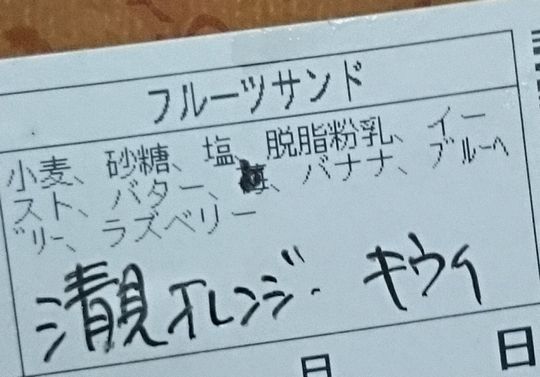 フルーツサンド
小麦、砂糖、塩、脱脂粉乳、イー
スト、バター、、バナナ、ブルーベ
リー、ラズベリー
清見オレンジ. キウイ
日 日